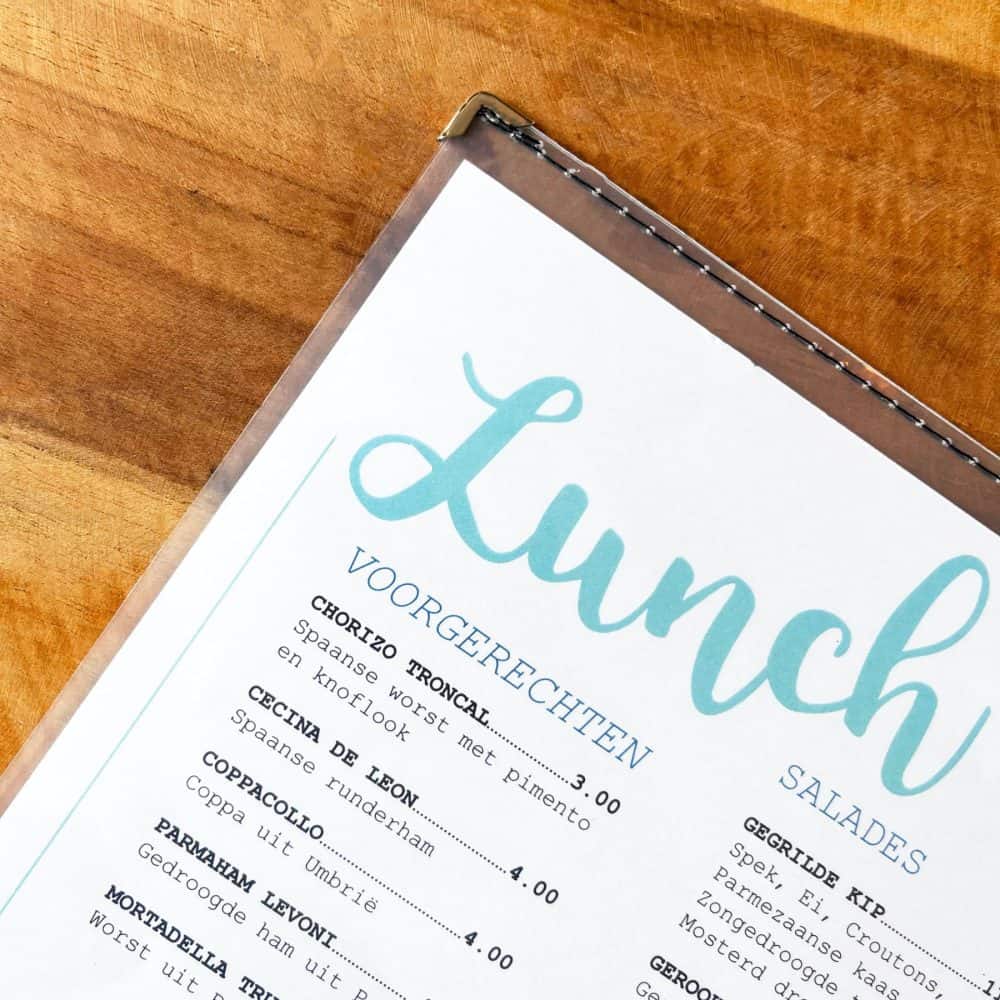 Lunch
VOORGERECHTEN
CHORIZO TRONCAL..........3.00
Spaanse worst met pimento
en knoflook
CECINA DE LEON..........4.00
Spaanse runderham
COPPACOLLO..........4.00
Coppa uit Umbrië
PARMAHAM LEVONI
Gedroogde ham uit
MORTADELLA
Worst uit
SALADES
GEGRILDE KIP
Spek, Ei, Croutons,
Parmezaanse kaas
Zongedroogde
Mosterd